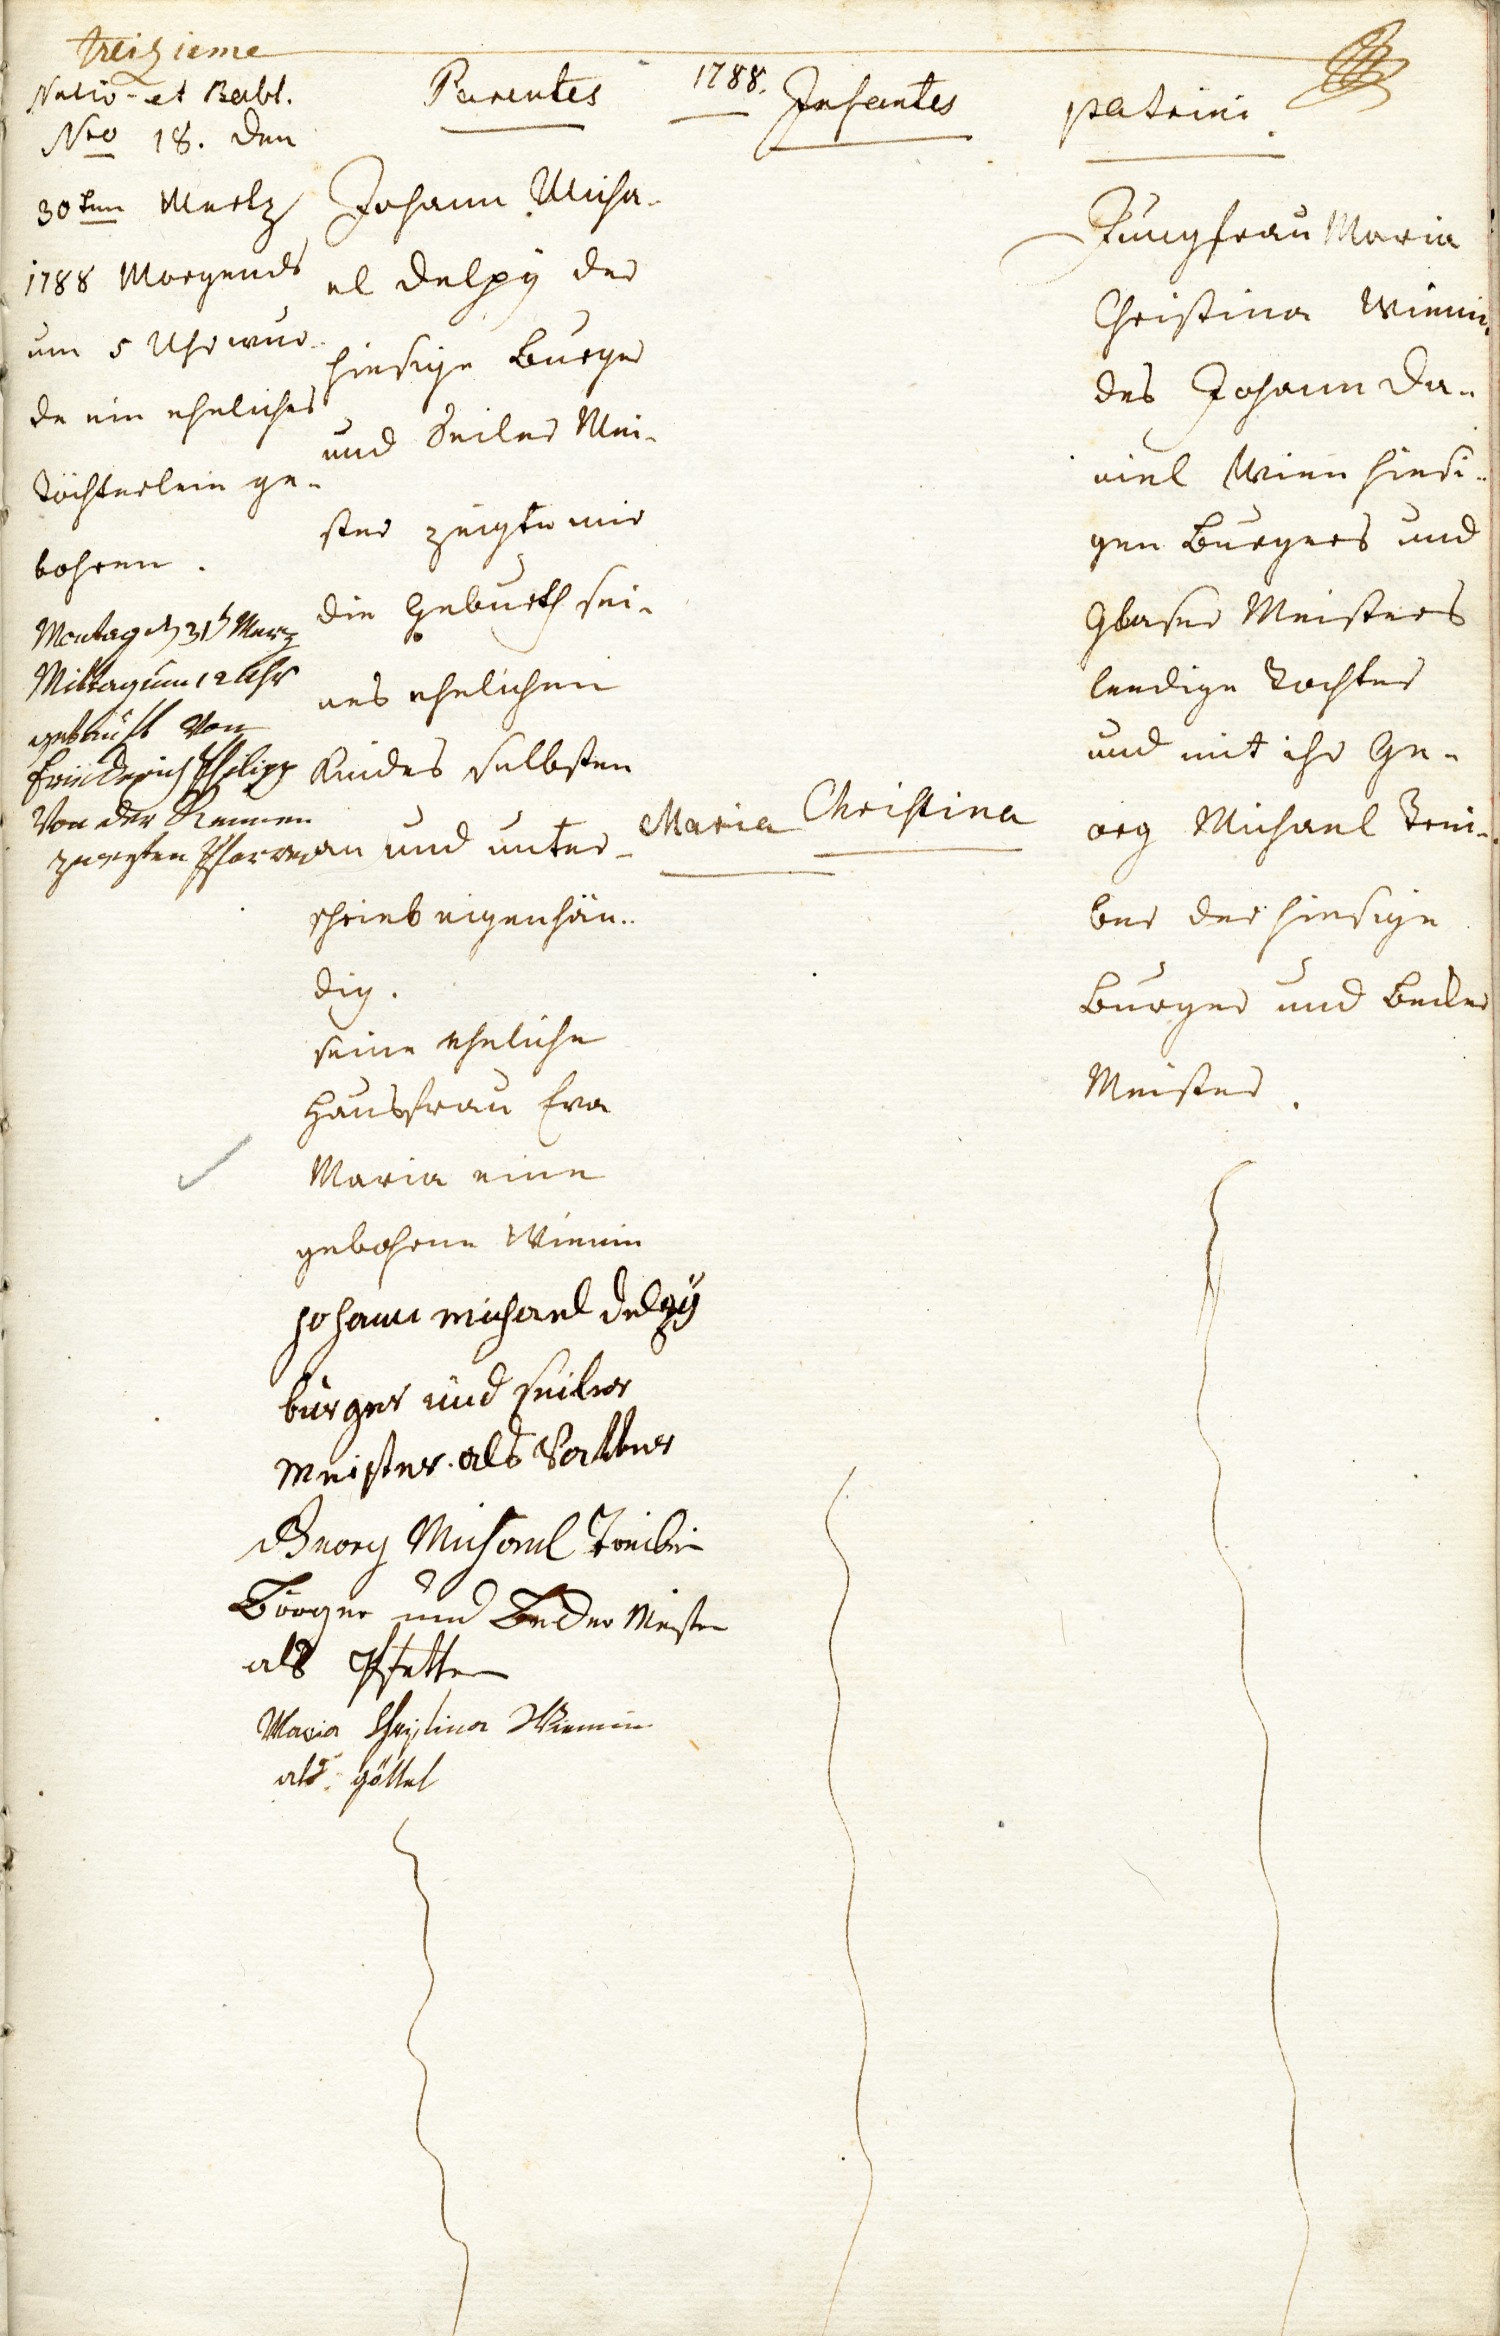 treizieme
Natio- et Babt.
Nro 18. den
30ten Mertz
1788 Morgends
um 5 Uhr wur-
de ein eheliches
Töchterlein ge-
bohren.
Montag d 31t Merz
Mittag um 12 Uhr
getäuft Von
Friederich Philipp
Von der Rennen
zweyten Pfarrer
Parentes
Johann Micha-
el Delpÿ der
hiesige Burger
und Seiler Mei-
ster zeigte mir
die Geburth sei-
nes ehelichen
Kindes selbsten
an und unter-
schrieb eigenhän-
dig.
seine eheliche
Hausfrau Eva
Maria eine
gebohrne Wienin
Johann michael delpÿ
burger und seiler
meister als Vatter
Georg Michael Treiber
Börger und Becker Meister
als Pfetter
Maria Christina Wienin
als göttel
1788.
Infantes
Maria Christina
patrini
Jungfrau Maria
Christina Wienin,
des Johann Da-
niel Wien hiesi-
gen Burgers und
Glaser Meisters
leedige Tochter
und mit ihr Ge-
org Michael Trei-
ber der hiesige
Burger und Becker
Meister.